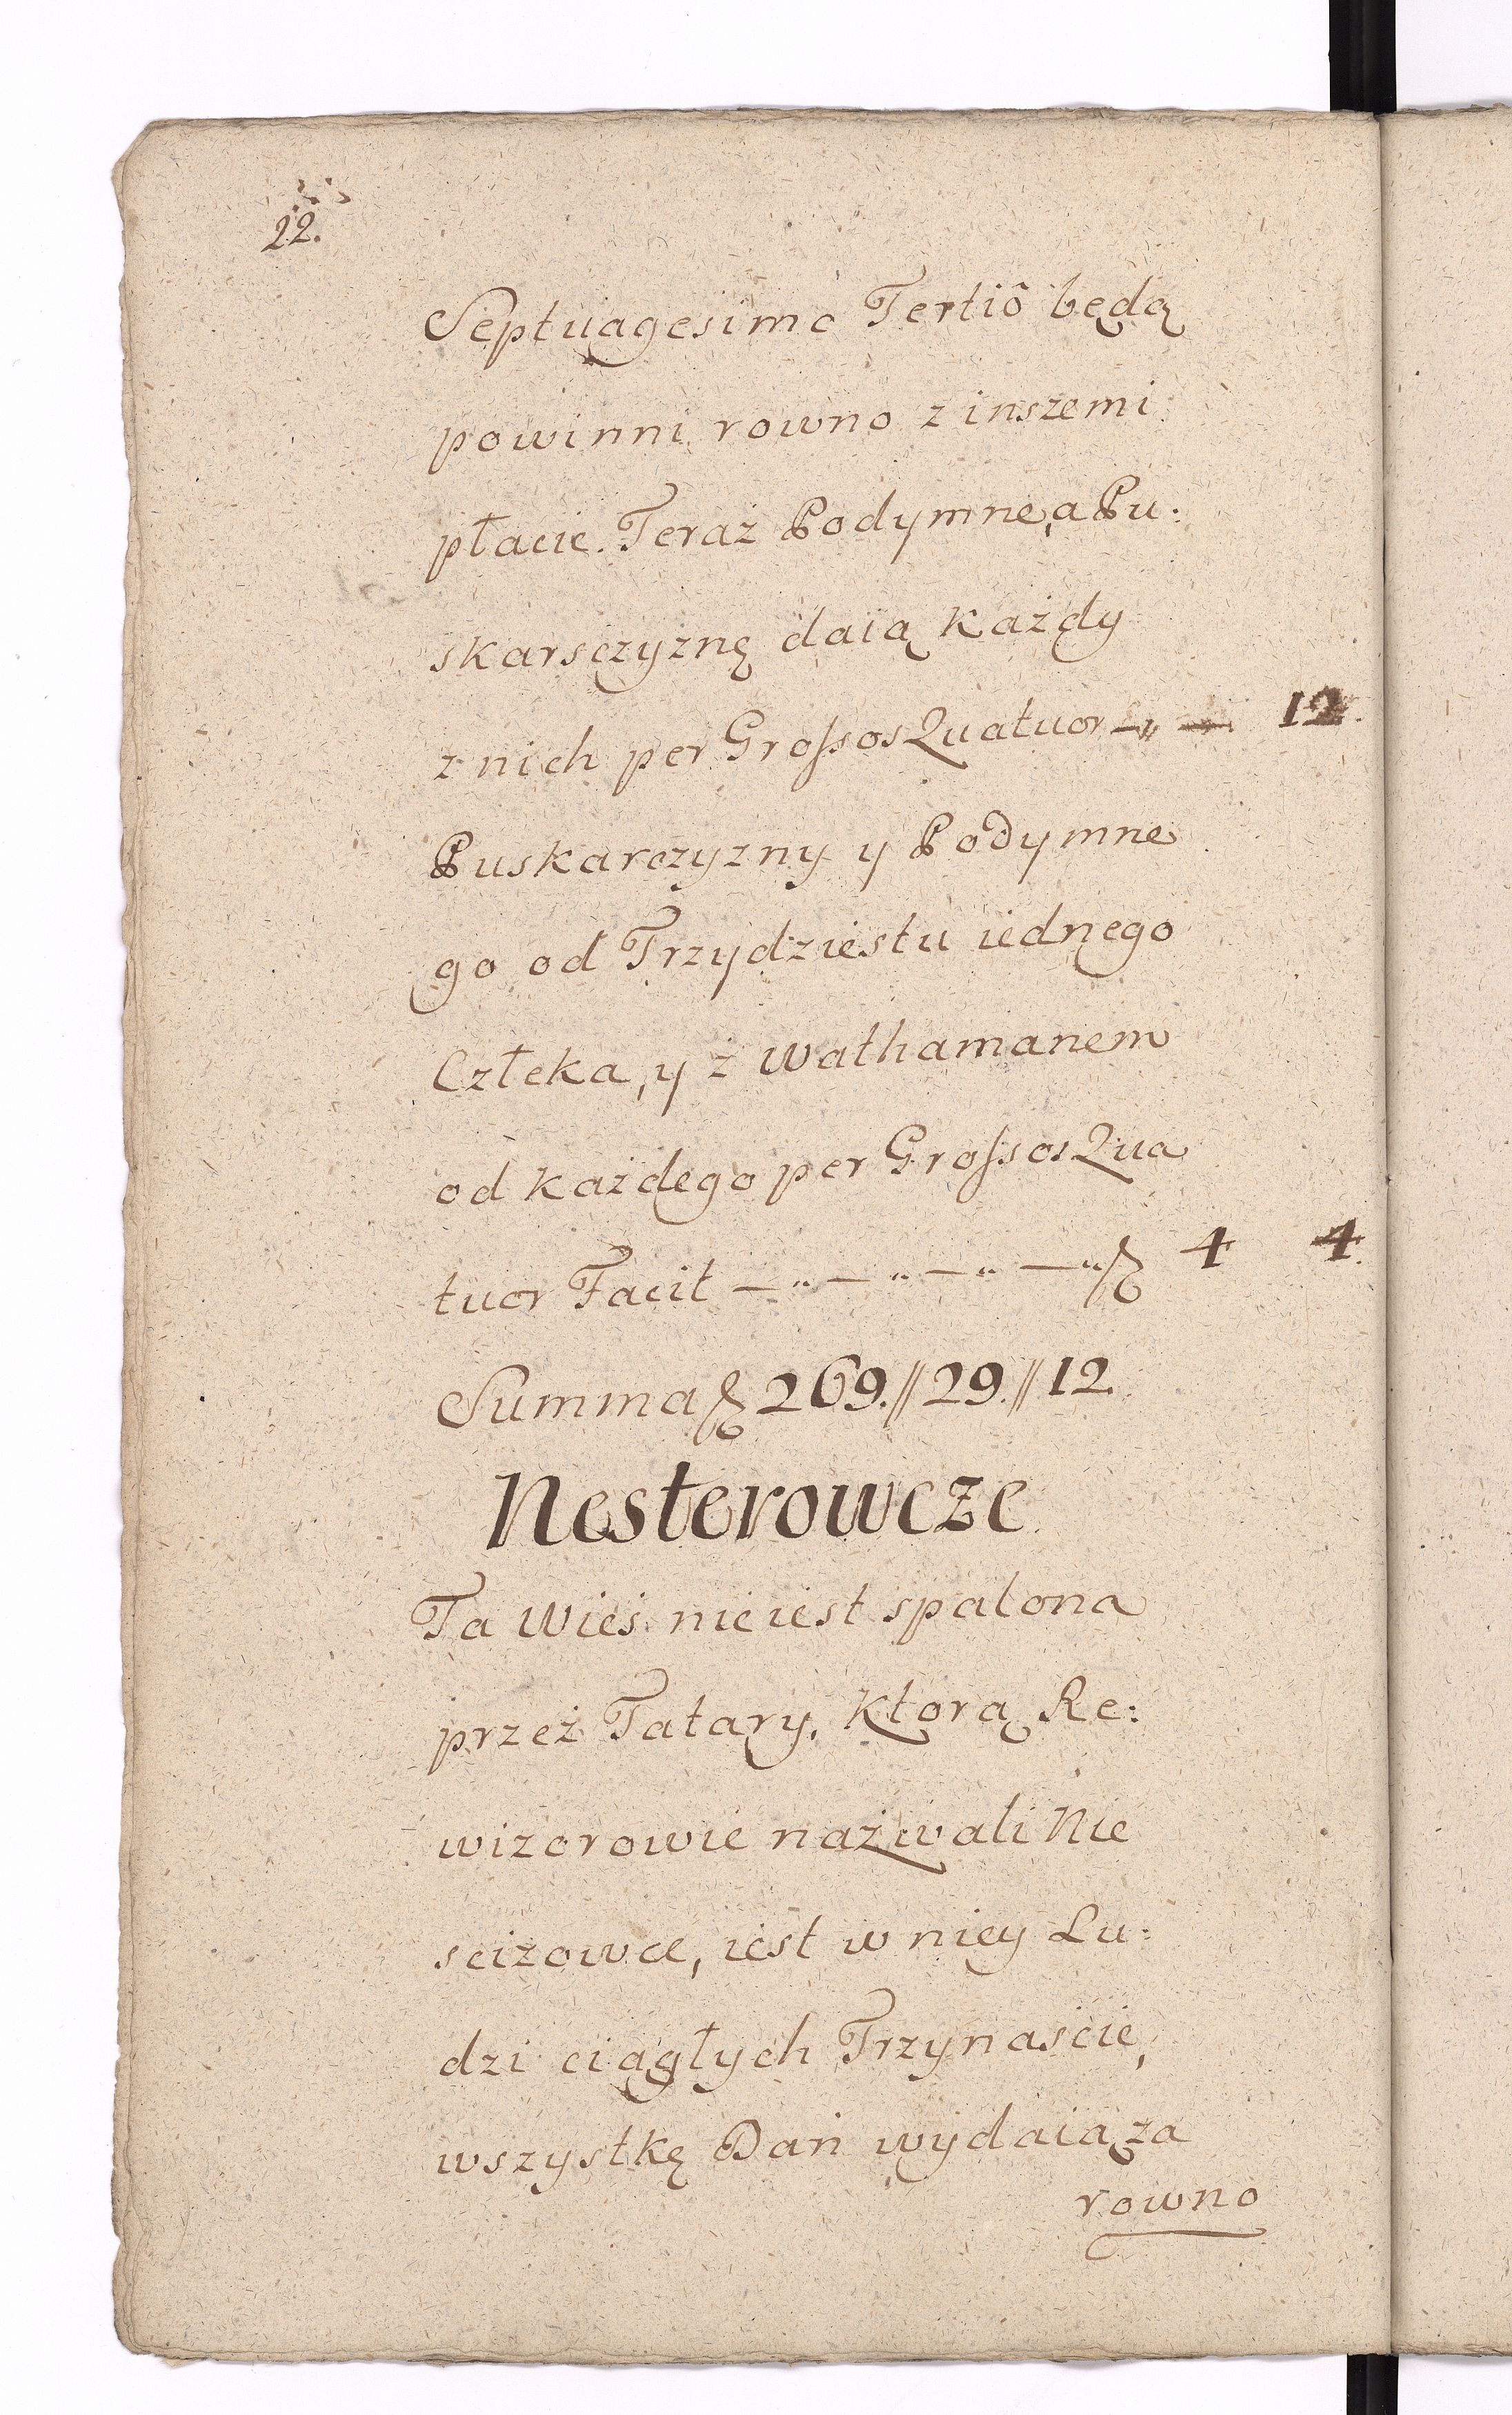 22.
Septuagesimo Tertiô będą
powinni rowno z inszemi
płacic. Teraz Podymne, a Pu:
skarsczyznę daią Każdy
z nich per Grossos Quatuor —„— 12.
Puskarczyzny y Podymne
go od Trzydziestu iednego
Człeka, y z Wathamanem
od każdego per Grossos Qua
tuor Facit —„—„—„—„ 4 4.
Summa 269.//29.//12.
Nesterowcze
Ta Wieś nie iest spalona
przeż Tatary, Ktorą Re:
wizorowie nażwali Nie
scizowce, iest w niey Lu:
dzi ciągłych Trzynaście,
wszystkę Dań wydaią za
rowno